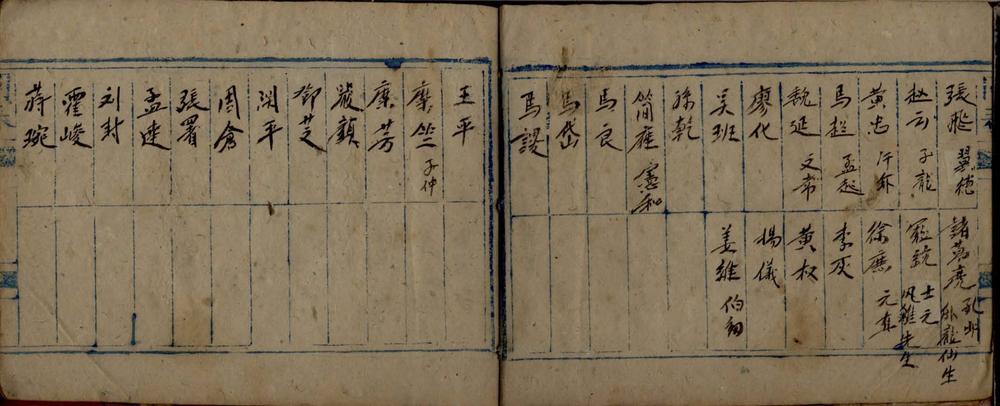 張飛 翼德
赵云 子龍
黄忠 汗升
馬超 孟起
魏延 文常
廖化
吴班
孫乾
簡雍 憲和
馬良
馬岱
馬謖
諸葛亮 孔明 卧龍仙生
龐統 士元 凤雏先生
徐庶 元直
李灰
黄权
楊儀
姜維 伯約
王平
糜竺 子仲
糜芳
嚴顔
鄧芝
関平
周倉
張署
孟達
刘封
霍峻
蒋琬